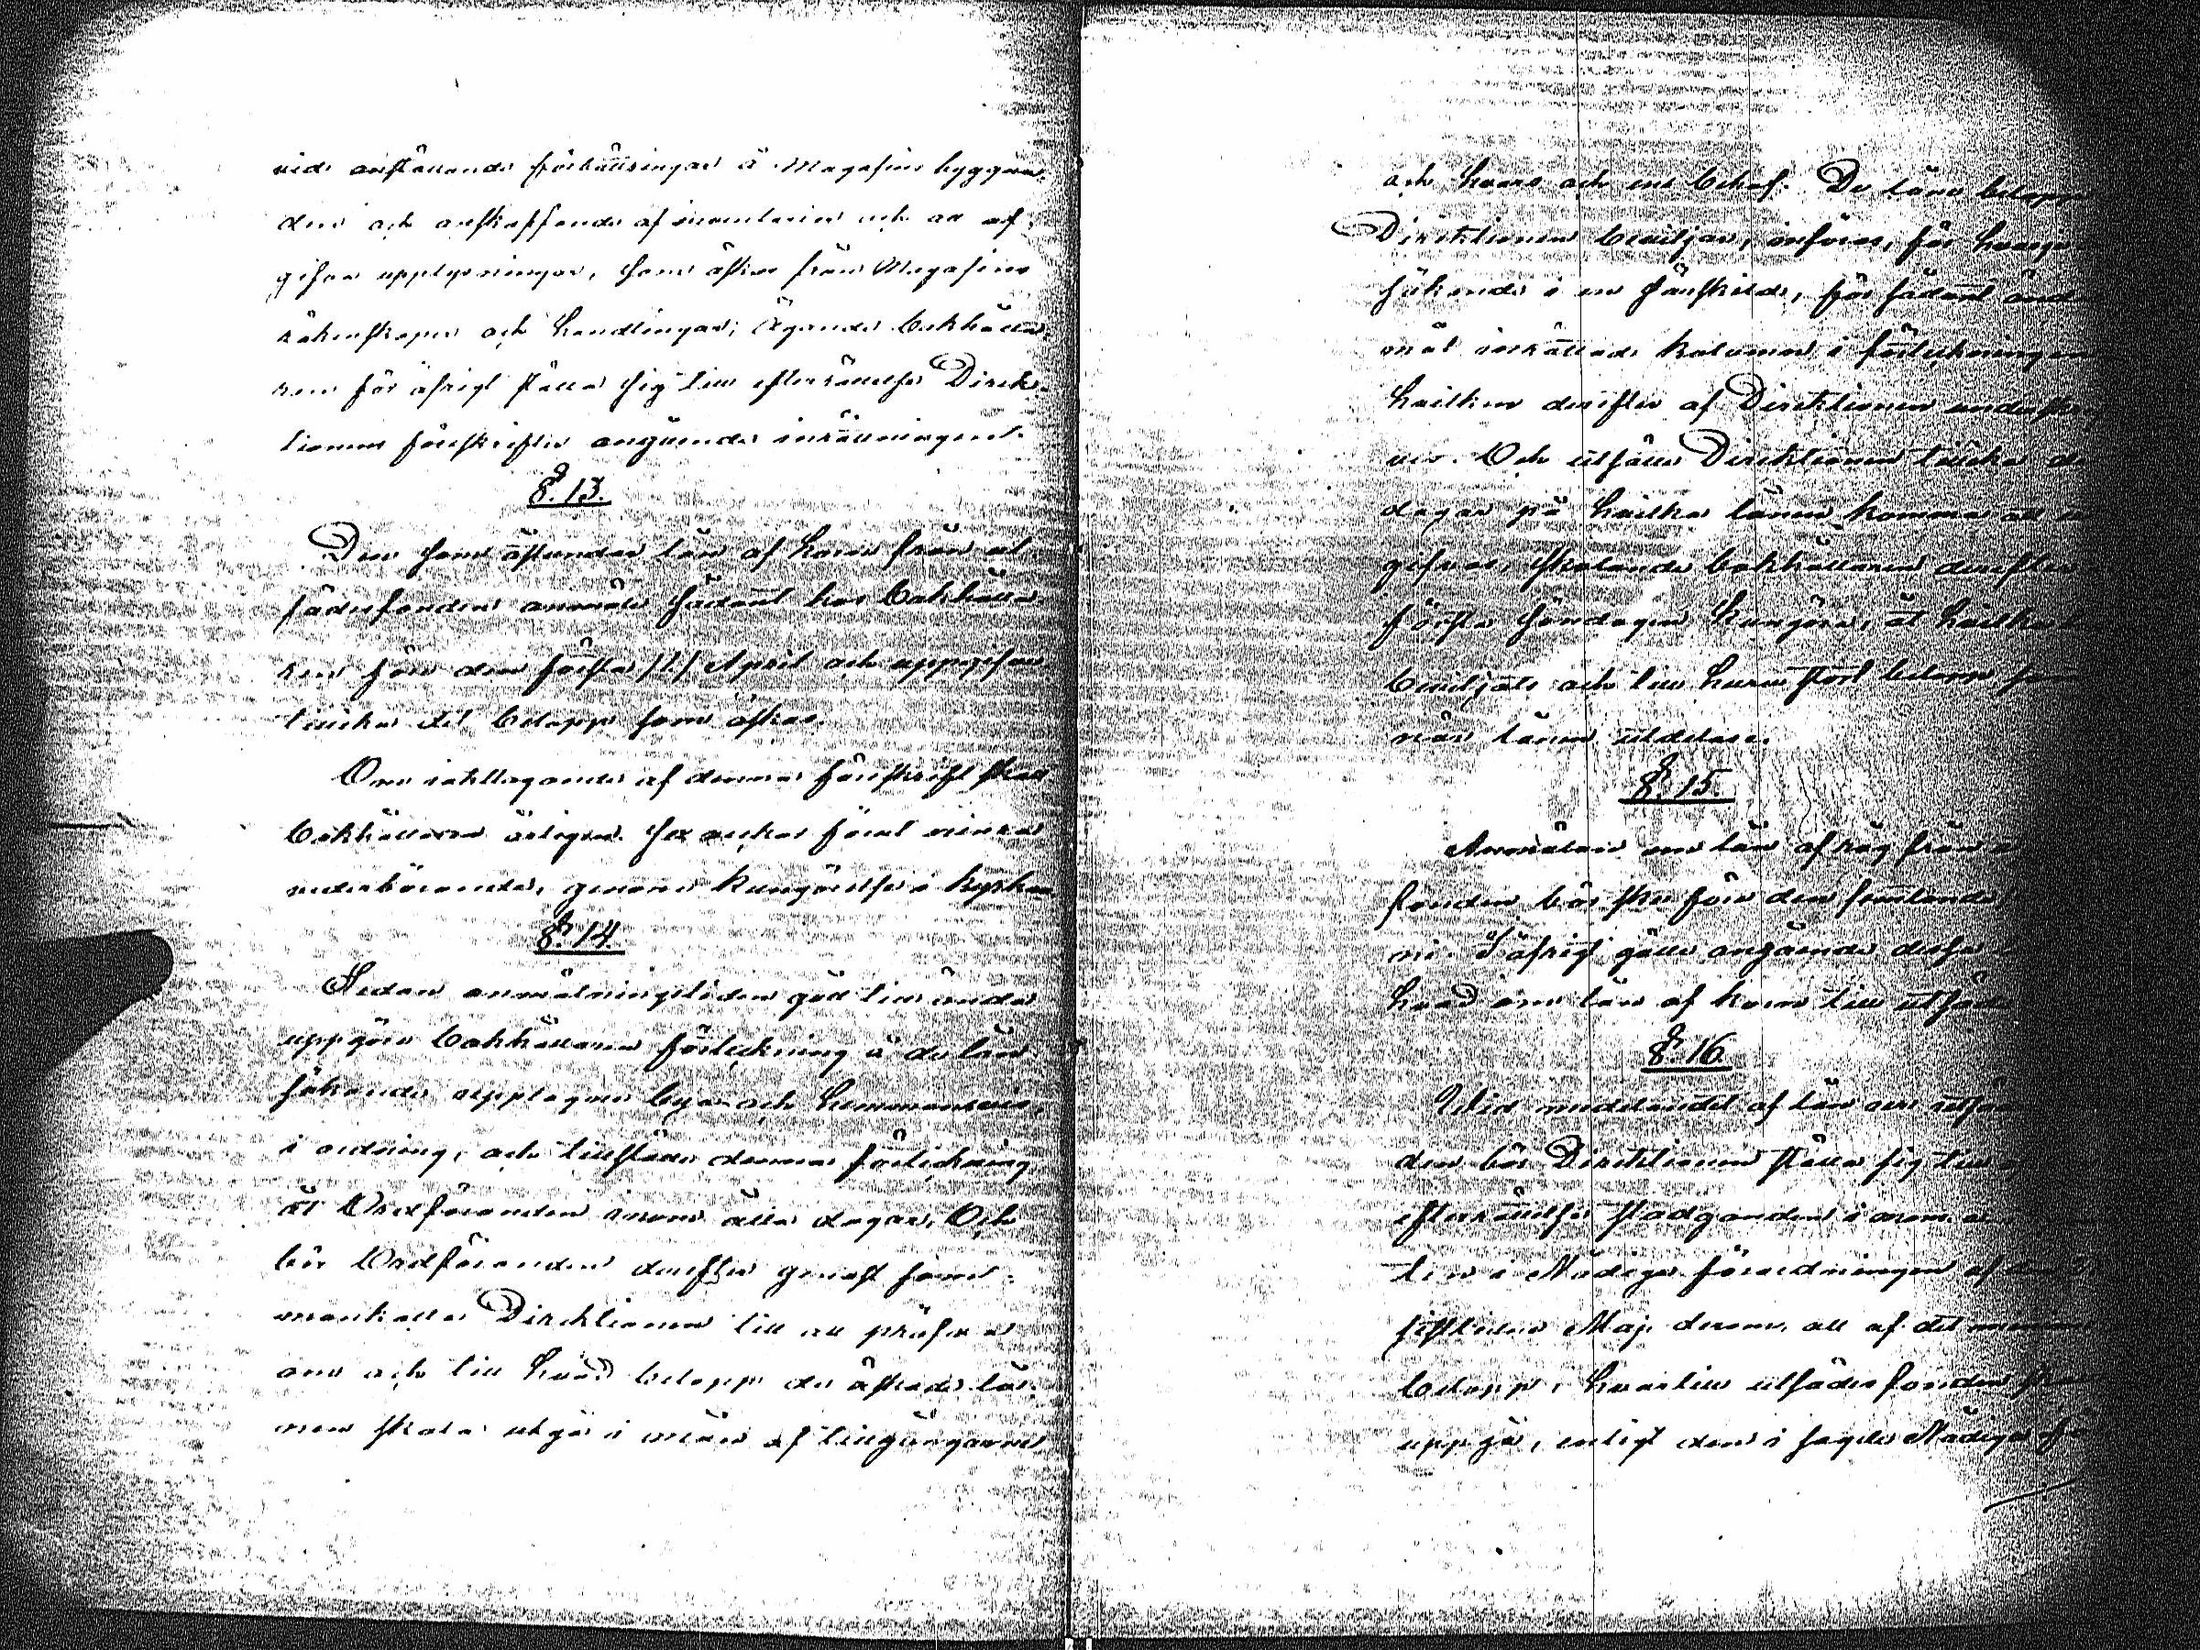 vid anställande förbättringar å Magasins byggna-
den och anskaffande af inventarier och att af-
gifva upplysningar, som äskas från Magasins
räkenskaper och handlingar; Ägande bokhålla-
ren för öfrigt ställa sig till efterrättelse Direk-
tionens föreskrifter angående inrättningen.
§. 13.
Den som åstundar lån af korn från ut-
sädesfonden anmäle sådant hos bokhålla-
ren före den första /1/ April och uppgifve
tillika det belopp som äskas.
Om iakttagande af denna föreskrift skall
bokhållaren årligen sex veckor förut minna
vederbörande, genom kungörelse i kyrkan
§. 14.
Sedan anmälningstiden gått till ända
uppgöre bokhållaren förteckning å de lån
sökande upptagne by- och hemmansvis,
i ordning, och tillställe denna förteckning
åt Ordföranden inom åtta dagar. Och
bör Ordföranden derefter genast sam-
mankalla Direktionen till att pröfva
om och till hvad belopp de äskade lå-
nen skola utgå i mån af tillgångarne
och hvars och ens behof. De låne belopp
Direktionen beviljar, införes, för hvarje
sökande i en särskild, för sådant ända-
mål inrättad kolumn i förteckningen
hvilken derefter af Direktionen underskrif-
ves. Och utsätte Direktionen tillika de
dagar på hvilka lånen komma att
gifvas, skolande bokhållaren derefter
första söndagen kungöra, åt hvilka
beviljats och till huru stort belopp
när lånen utdelas.
§. 15.
Anmälan om lån af råg från
fonden bör ske före den femtonde
ni. I öfrigt gälle angående dessa
hvad om lån af korn till utsäde
§. 16.
Wid meddelandet af lån ur
den bör Direktionen ställa sig till
efterrättelse stadganden i
ten i Nådiga förordningen af den
sistliden Maj derom, att af det
belopp, hvartill utsädesfonden
uppgå, enligt den i sagde Nådiga